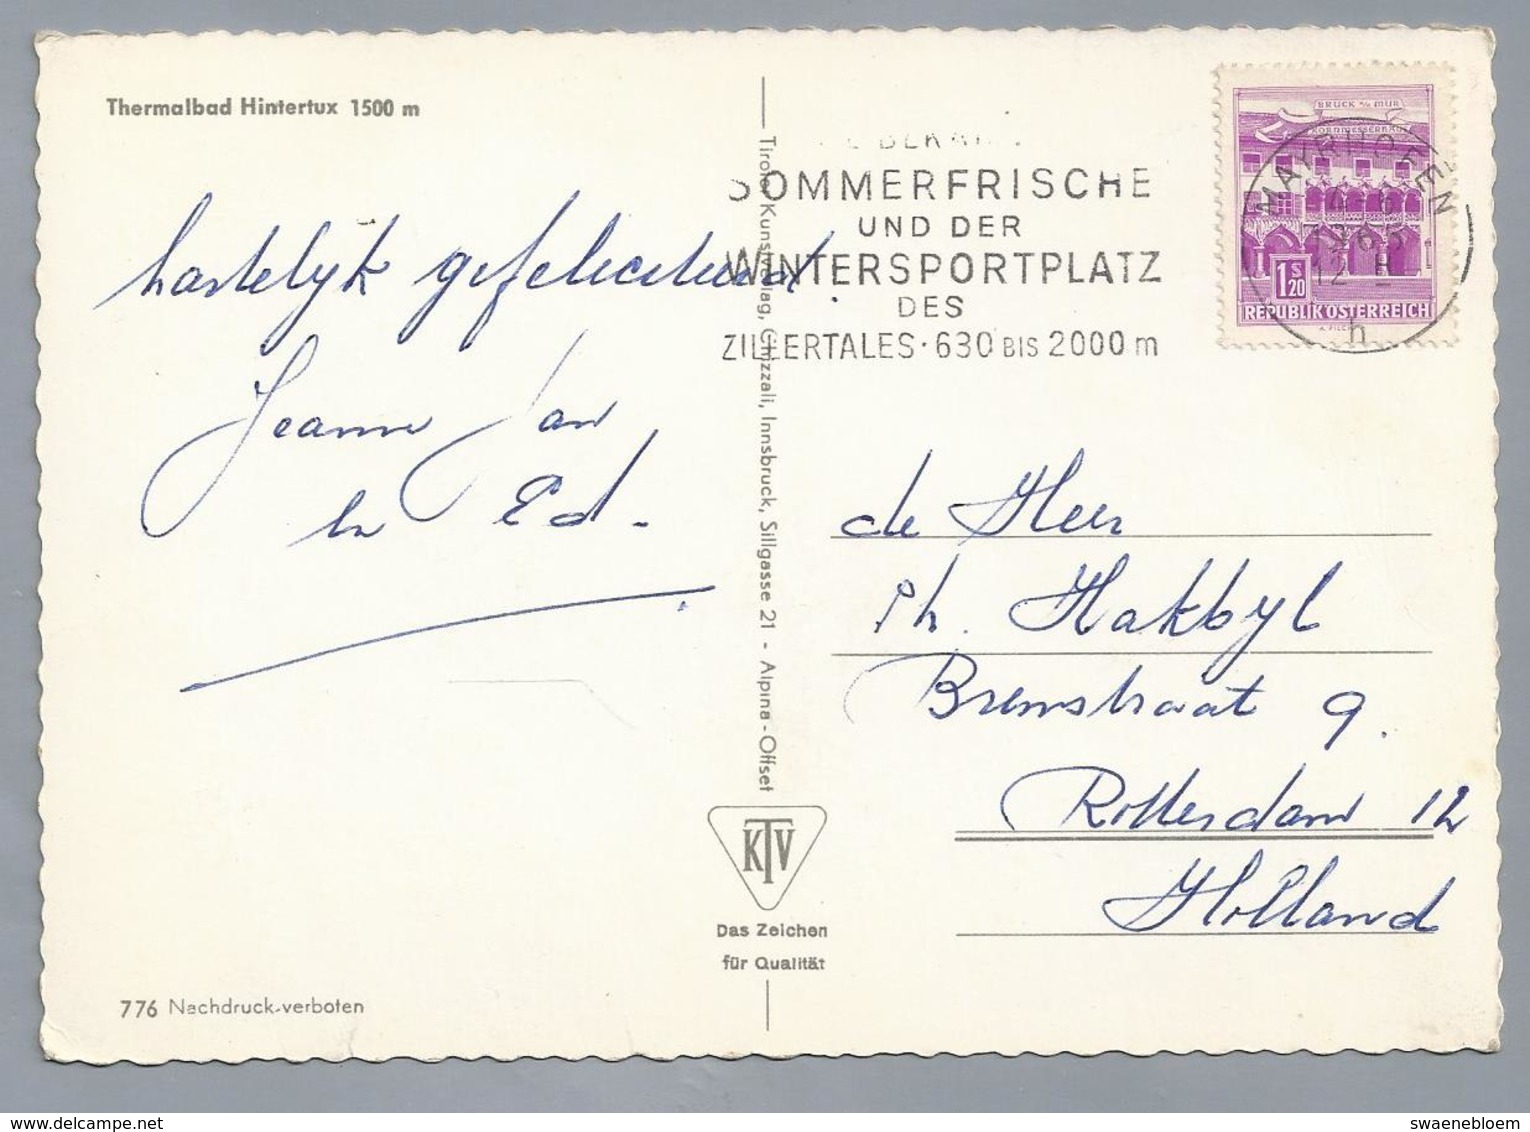 Thermalbad Hintertux 1500 m
hartelijk gefeliciteerd.
Jeanne Jan
en Ed.
776 Nachdruck verboten
Tiroler Kunstverlag, Chizzali, Innsbruck, Sillgasse 21 - Alpina-Offset
KTV
Das Zeichen
für Qualität
SOMMERFRISCHE
UND DER
WINTERSPORTPLATZ
DES
ZILLERTALES · 630 BIS 2000 m
BRUCK a/d MUR
KORNMESSERHAUS
1 S 20
REPUBLIK ÖSTERREICH
MAYRHOFEN
1965
12 H
h
de Heer
Ph. Hakbyl
Bremstraat 9.
Rotterdam 12
Holland
delcampe.net
swaenebloem